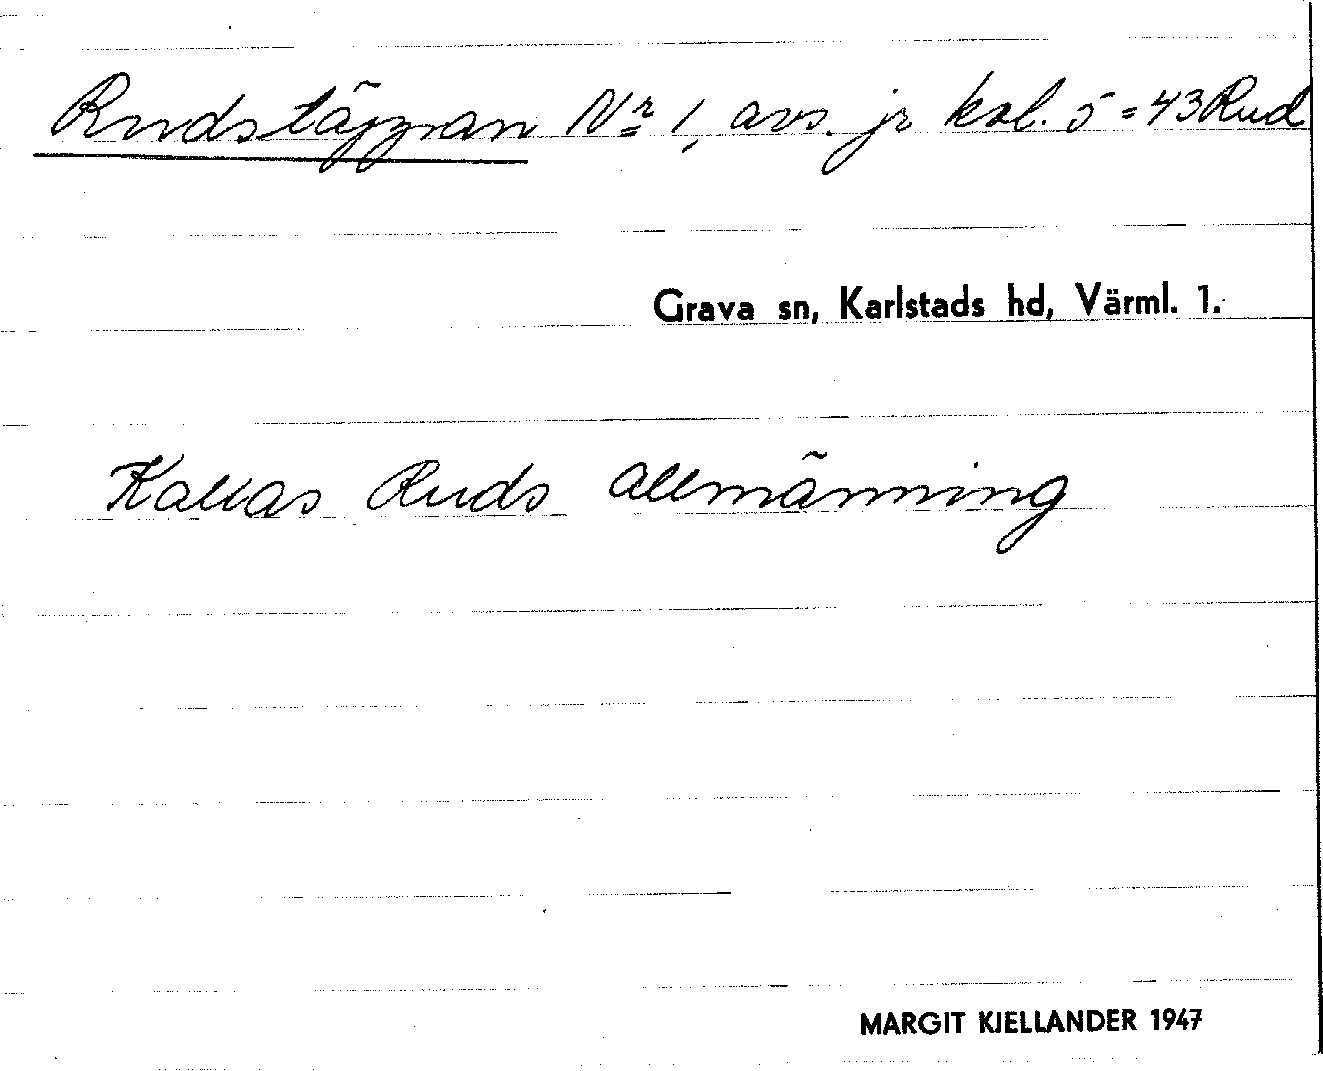 Rudstäppan Nr 1, avs. jr kol. 5 = 43 Rud
Grava sn, Karlstads hd, Värml. 1.
Kallas Ruds allmänning
MARGIT KJELLANDER 1947